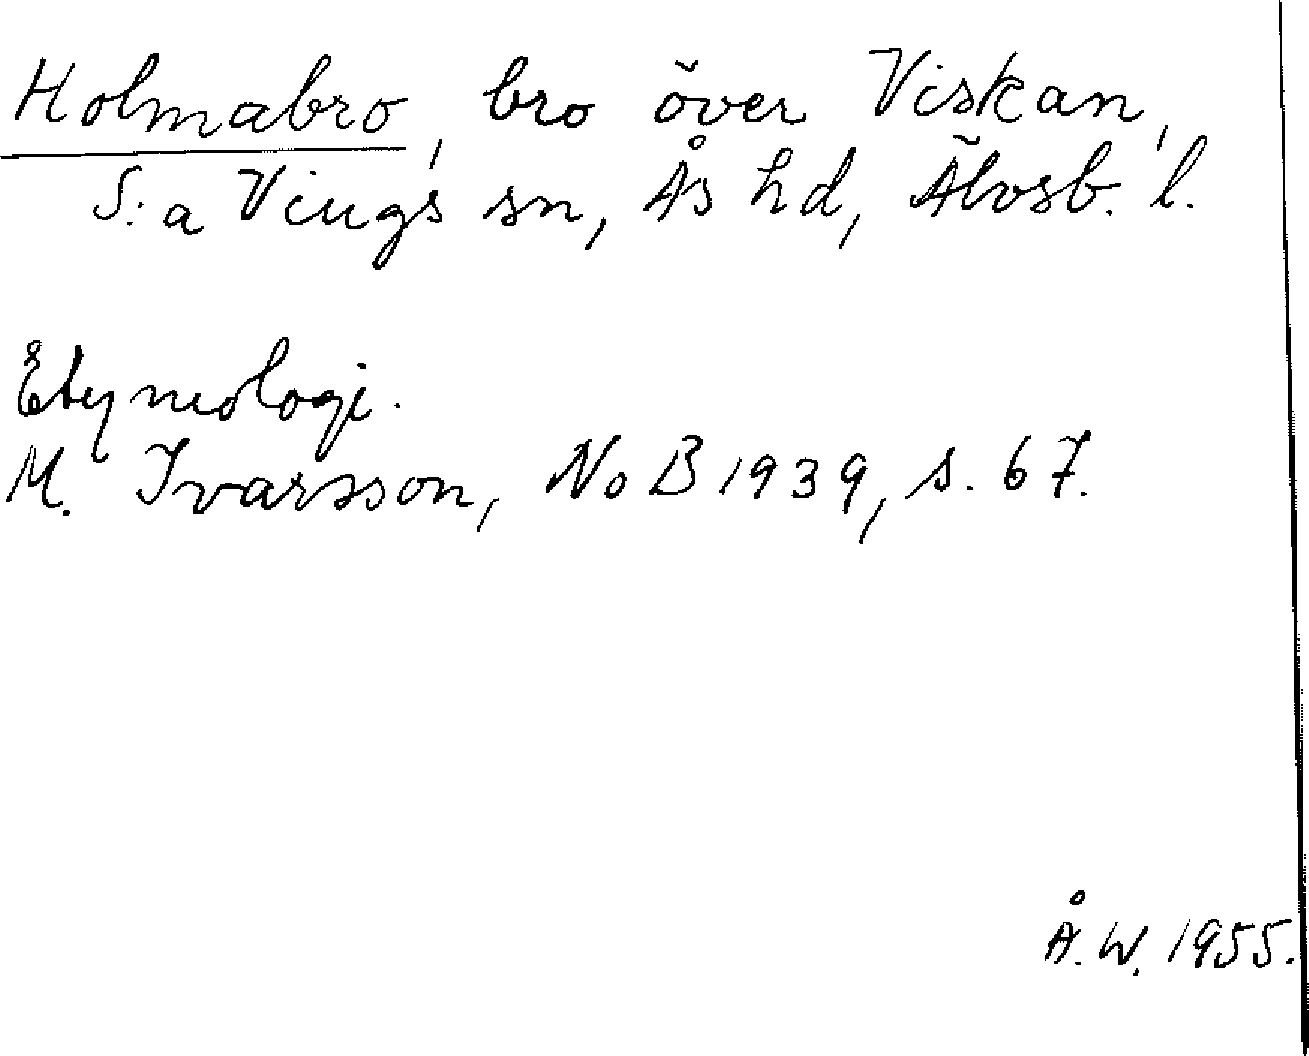 Holmabro, bro över Viskan,
S:a Vings sn, Ås hd, Älvsb. l.
Etymologi.
M. Ivarsson, NoB 1939, s. 67.
Å. W. 1955.